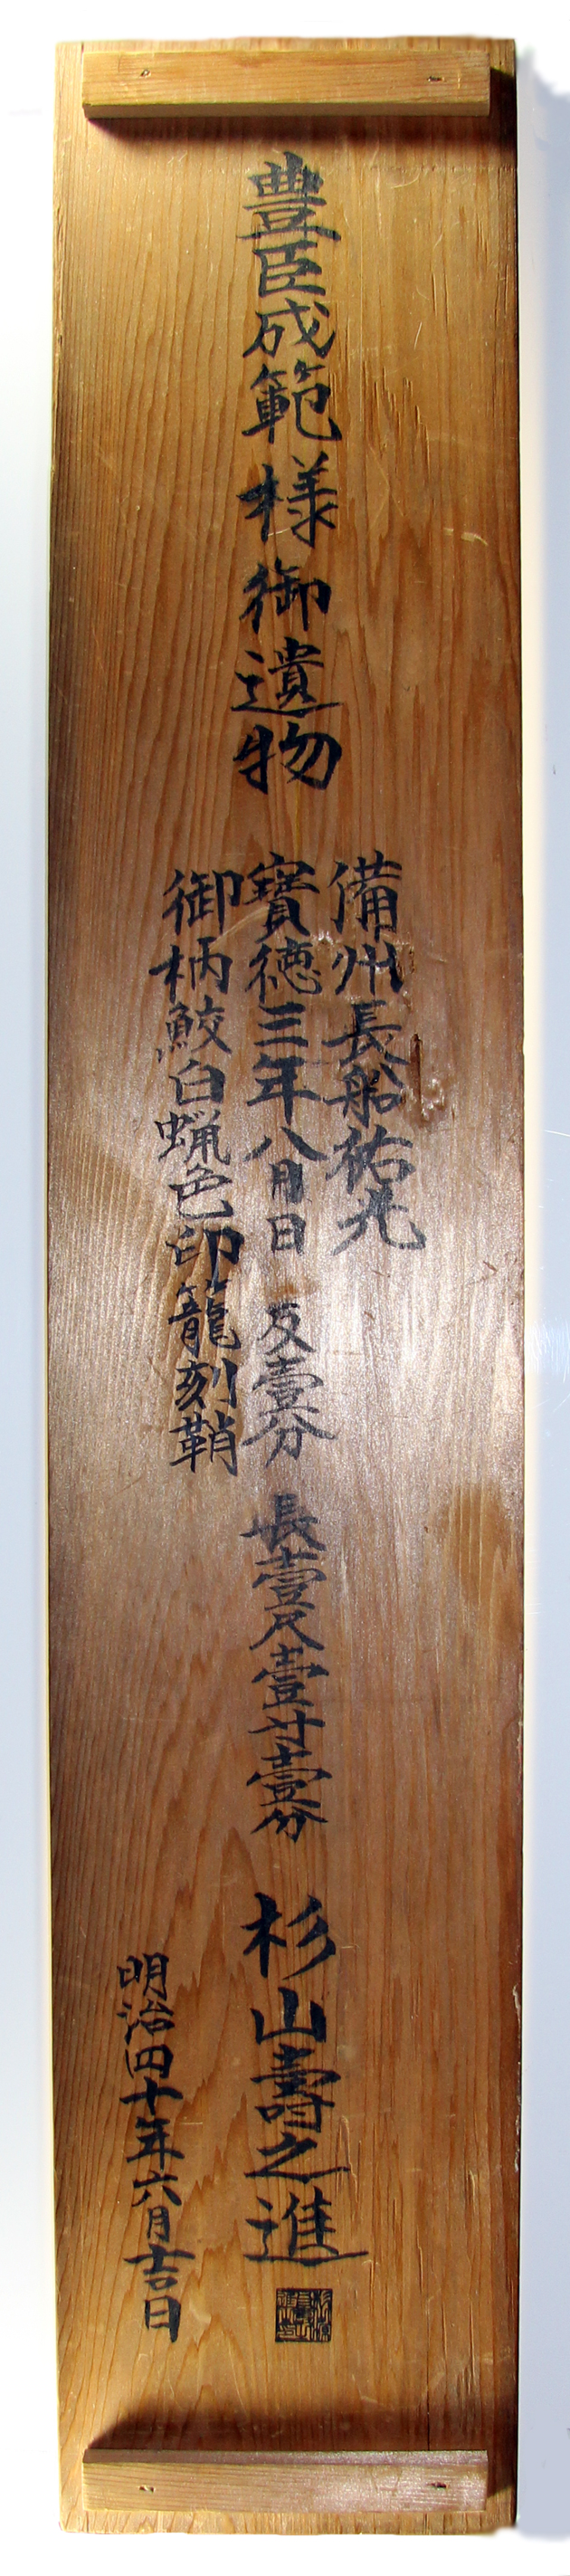 豊臣成範様御遺物
備州長船祐光
寳徳三年八月日 反壹分 長壹尺壹寸壹分
御柄鮫白蝋色印籠刻鞘
杉山壽之進
明治四十年六月吉日